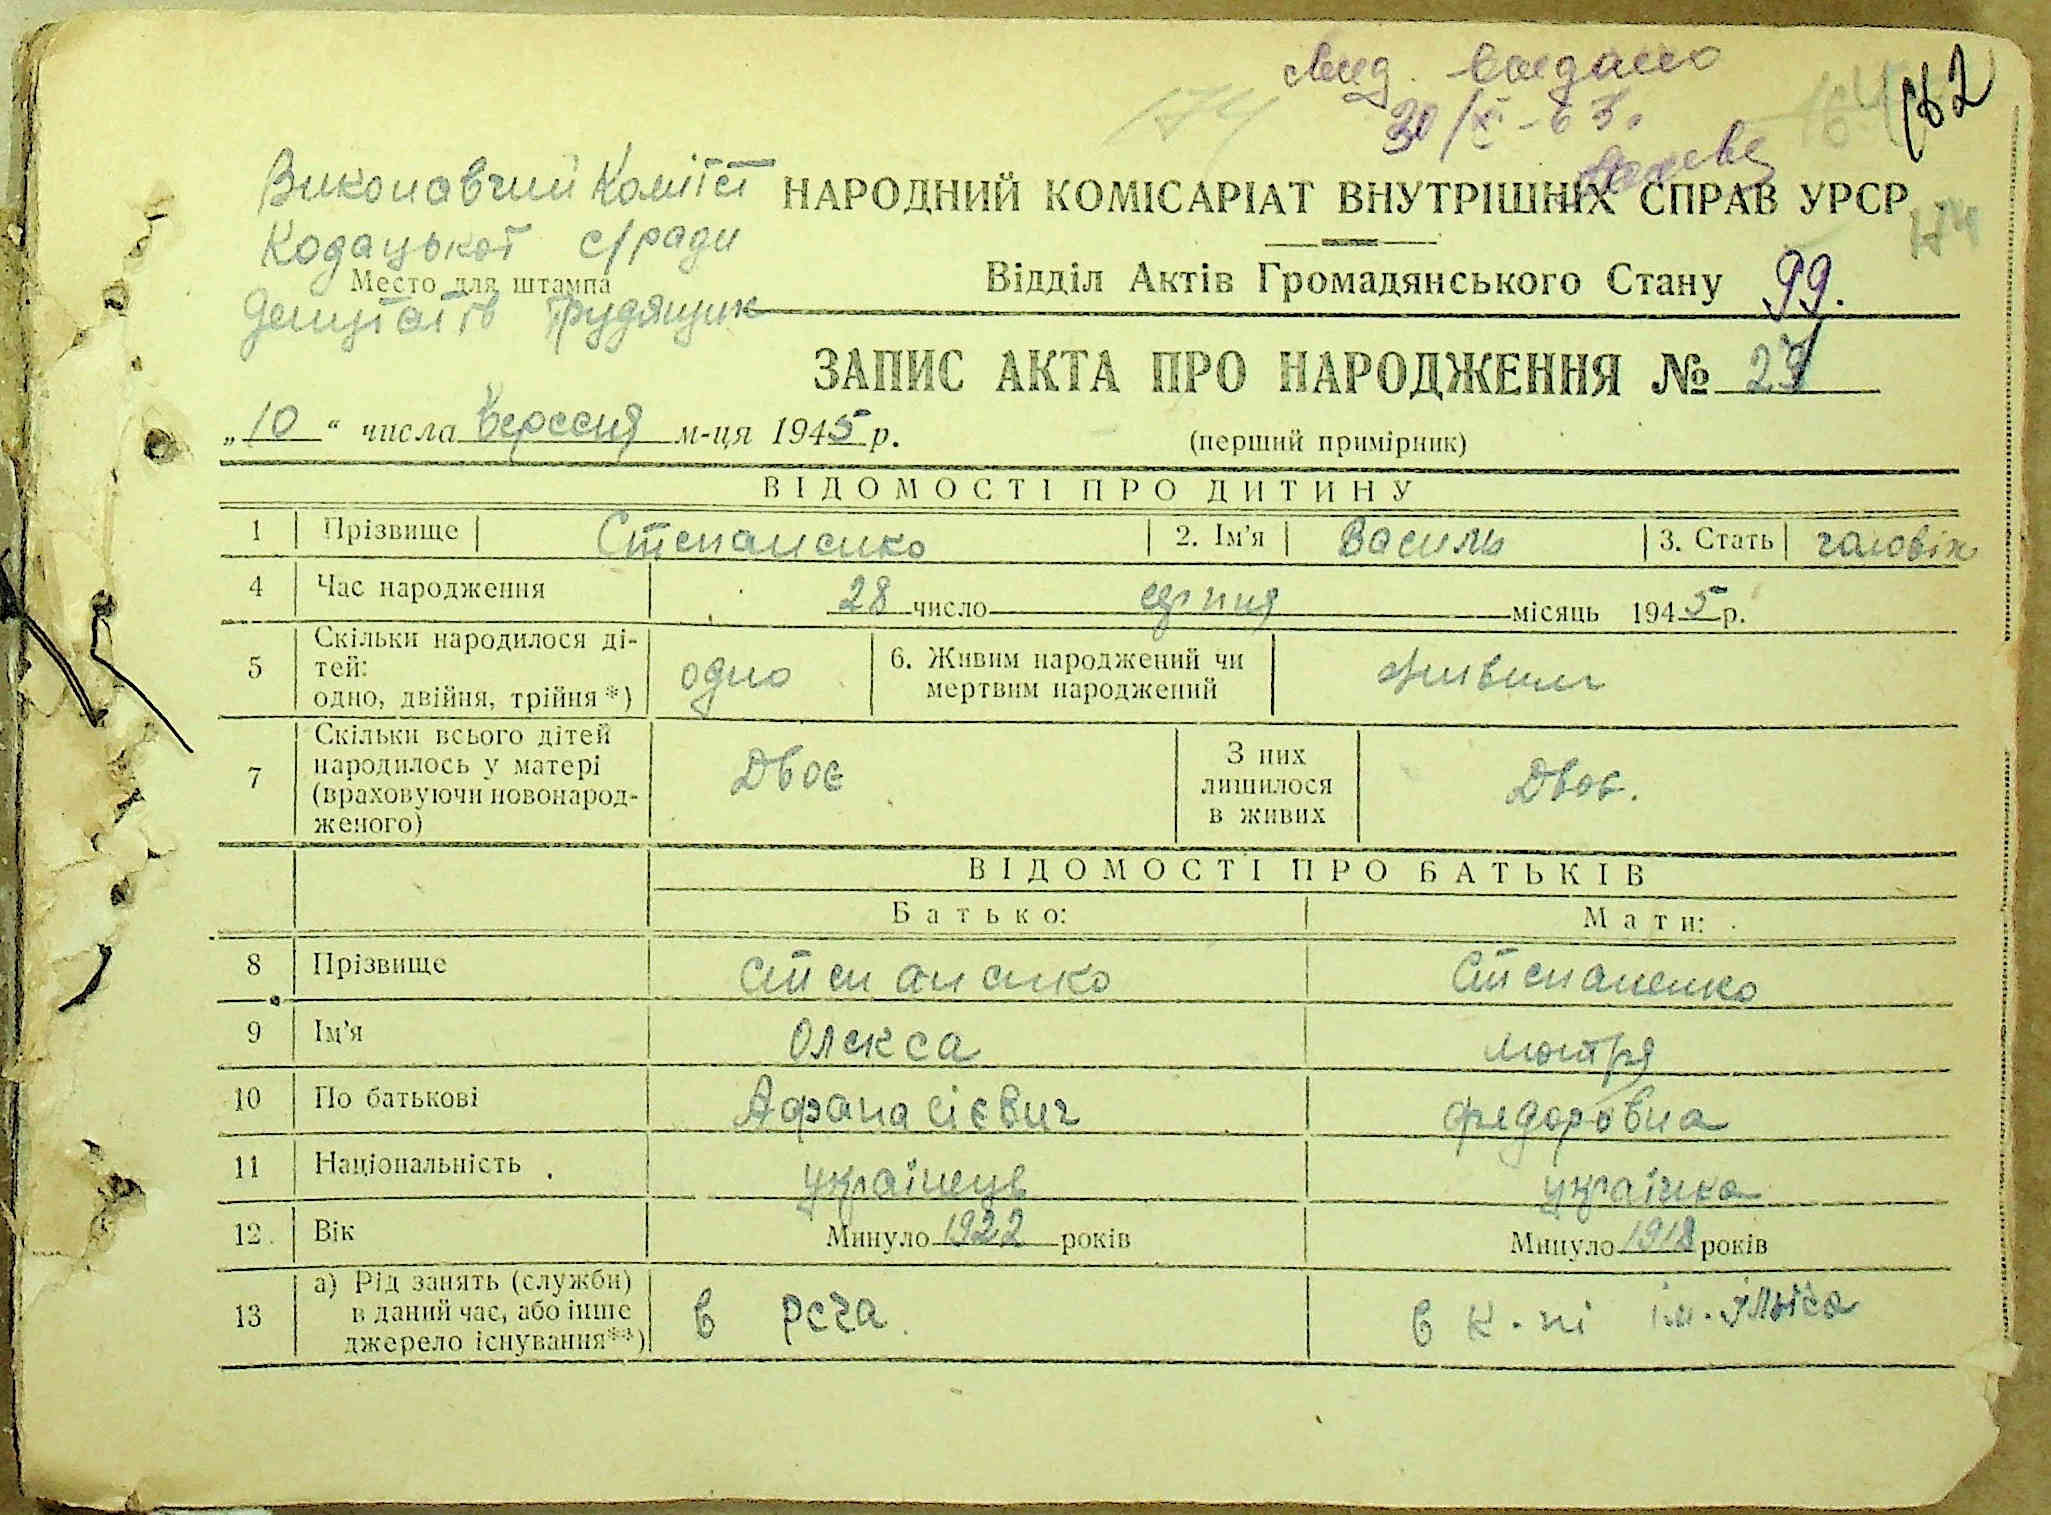 30/XI-63.
174
164
162
Виконавчий Комітет
Кодацької с/ради
Место для штампа
депутатів трудящих
НАРОДНИЙ КОМІСАРІАТ ВНУТРІШНІХ СПРАВ УРСР
174
Відділ Актів Громадянського Стану 99.
ЗАПИС АКТА ПРО НАРОДЖЕННЯ №
„10“ числа вересня м-ця 1945 р.
(перший примірник)
ВІДОМОСТІ ПРО ДИТИНУ
1 Прізвище Степаненко 2. Ім'я Василь 3. Стать чоловік
4 Час народження 28 число серпня місяць 1945 р.
5 Скільки народилося ді-
тей:
одно, двійня, трійня*) одно 6. Живим народжений чи
мертвим народжений живим
7 Скільки всього дітей
народилось у матері
(враховуючи новонарод-
женого) Двоє З них
лишилося
в живих Двоє.
ВІДОМОСТІ ПРО БАТЬКІВ
Батько: Мати:
8 Прізвище Степаненко Степаненко
9 Ім'я Олекса Мотря
10 По батькові Афанасієвич Федоровна
11 Національність українець українка
12 Вік Минуло 1922 років Минуло 1918 років
13 а) Рід занять (служби)
в даний час, або інше
джерело існування**) в рсча в к-пі ім. Ілліча